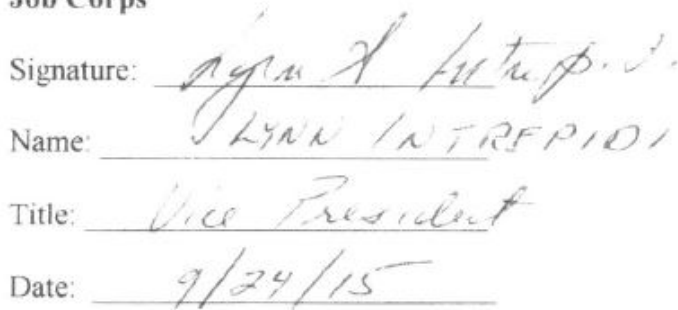 Job Corps
Signature: Lynn A Intrepidi
Name: LYNN INTREPIDI
Title: Vice President
Date: 9/24/15